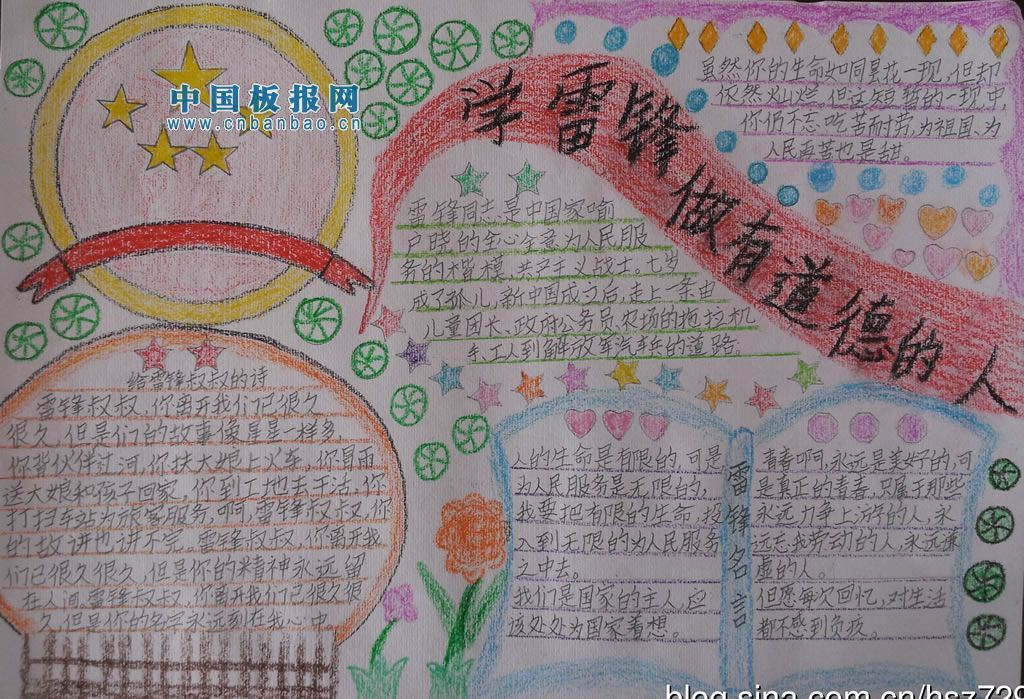 中国板报网
www.cnbanbao.cn
学雷锋做有道德的人
虽然你的生命如同昙花一现,但却
依然灿烂,但这短暂的一现中,
你仍不忘吃苦耐劳,为祖国、为
人民再苦也是甜。
雷锋同志是中国家喻
户晓的全心全意为人民服
务的楷模,共产主义战士。七岁
成了孤儿,新中国成立后,走上一条由
儿童团长、政府公务员、农场的拖拉机
手、工人到解放军汽车兵的道路。
给雷锋叔叔的诗
雷锋叔叔,你离开我们已很久
很久,但是们的故事像星星一样多,
你背伙伴过河,你扶大娘上火车,你冒雨
送大娘和孩子回家,你到工地去干活,你
打扫车站为旅客服务,啊,雷锋叔叔,你
的故讲也讲不完。雷锋叔叔,你离开我
们已很久很久,但是你的精神永远留
在人间。雷锋叔叔,你离开我们已很久很
久,但是你的名字永远刻在我心中
人的生命是有限的,可是
为人民服务是无限的,
我要把有限的生命,投
入到无限的为人民服务
之中去。
我们是国家的主人,应
该处处为国家着想。
雷锋名言
青春啊,永远是美好的,可
是真正的青春,只属于那些
永远力争上游的人,永
远忘我劳动的人,永远谦
虚的人。
但愿每次回忆,对生活
都不感到负疚。
blog.sina.com.cn/hsz729